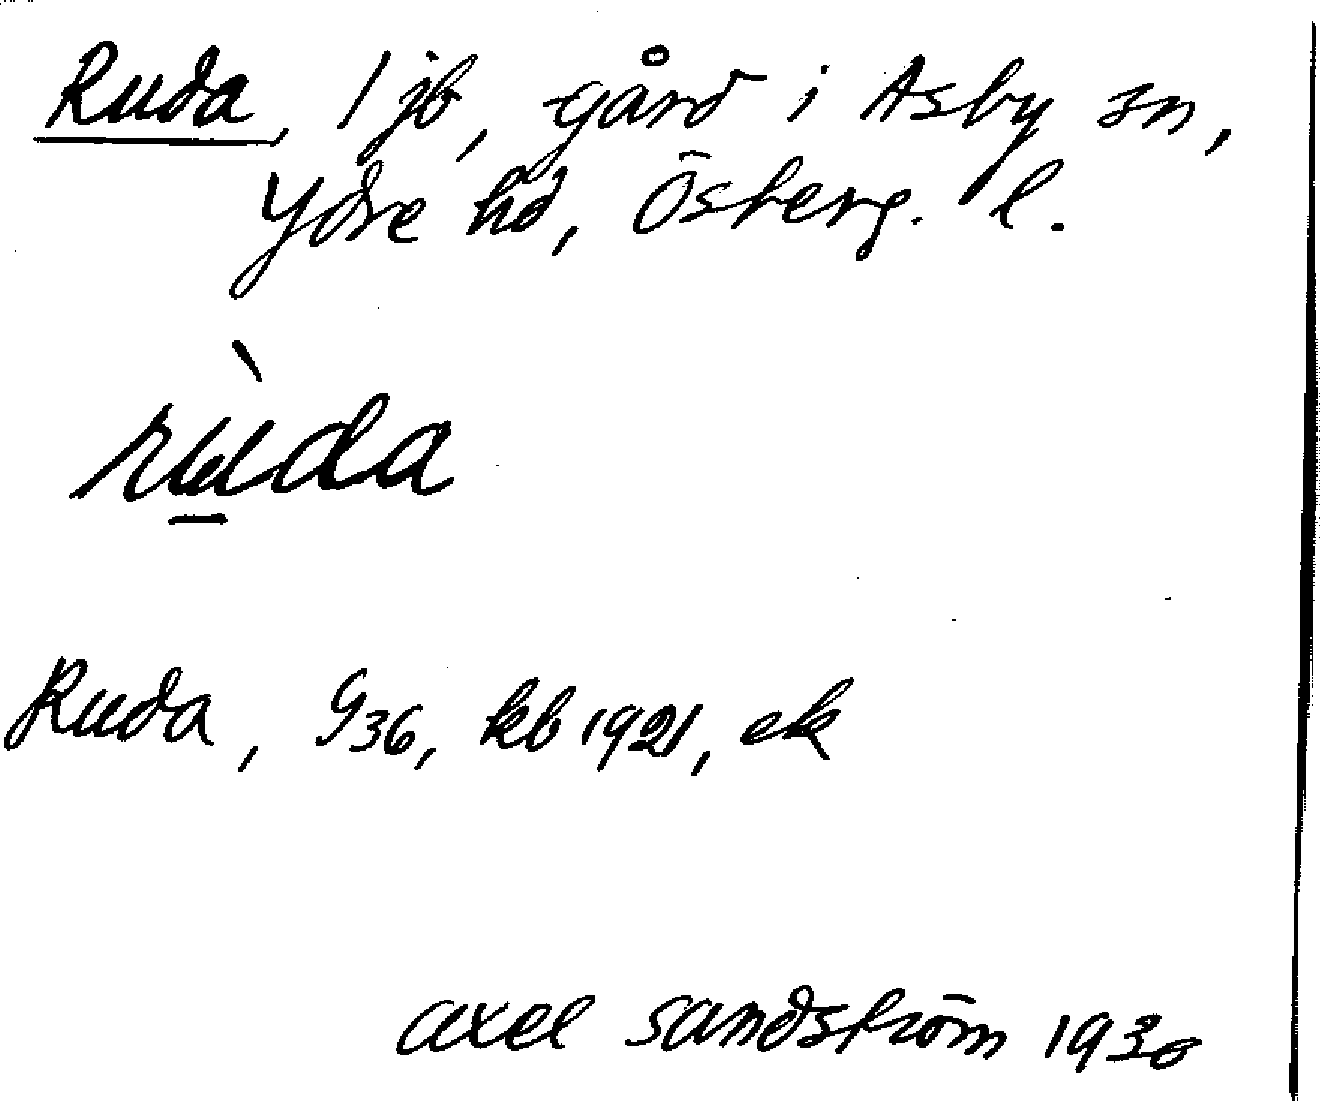 Ruda, 1 jb, gård i Asby sn,
Ydre hd, Österg. l.
rùda
Ruda, G36, kb 1921, ek
axel sandström 1930